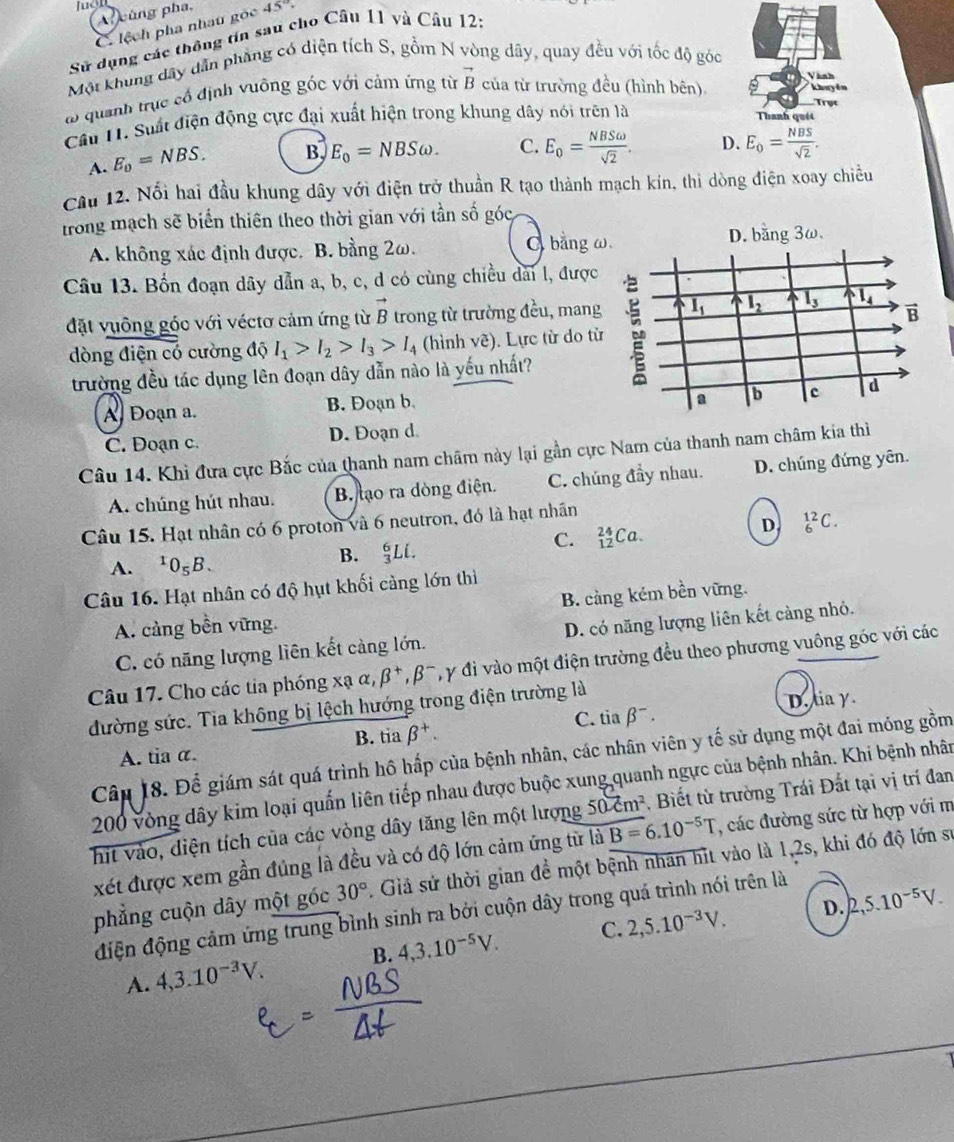 luôn
A. cùng pha.
C. lệch pha nhau góc 45°.
Sử dụng các thông tin sau cho Câu 11 và Câu 12:
Một khung dây dẫn phẳng có diện tích S, gồm N vòng dây, quay đều với tốc độ góc
ω quanh trục cố định vuông góc với cảm ứng từ B⃗ của từ trường đều (hình bên).
Vành khuyên
Trục
Thanh quét
Câu 11. Suất điện động cực đại xuất hiện trong khung dây nói trên là
A. E₀ = NBS. B. E₀ = NBSω. C. E₀ = NBSω/√2. D. E₀ = NBS/√2.
Câu 12. Nối hai đầu khung dây với điện trở thuần R tạo thành mạch kín, thì dòng điện xoay chiều
trong mạch sẽ biến thiên theo thời gian với tần số góc
A. không xác định được. B. bằng 2ω. C. bằng ω. D. bằng 3ω.
Câu 13. Bốn đoạn dây dẫn a, b, c, d có cùng chiều dài l, được
đặt vuông góc với véctơ cảm ứng từ B⃗ trong từ trường đều, mang
dòng điện có cường độ I₁ > I₂ > I₃ > I₄ (hình vẽ). Lực từ do từ
trường đều tác dụng lên đoạn dây dẫn nào là yếu nhất?
A. Đoạn a. B. Đoạn b.
C. Đoạn c. D. Đoạn d.
Đường sức từ
I₁ I₂ I₃ I₄ B⃗
a b c d
Câu 14. Khi đưa cực Bắc của thanh nam châm này lại gần cực Nam của thanh nam châm kia thì
A. chúng hút nhau. B. tạo ra dòng điện. C. chúng đẩy nhau. D. chúng đứng yên.
Câu 15. Hạt nhân có 6 proton và 6 neutron, đó là hạt nhân
A. ¹0₅B. B. ⁶₃Li. C. ²⁴₁₂Ca. D. ¹²₆C.
Câu 16. Hạt nhân có độ hụt khối càng lớn thì
A. càng bền vững. B. càng kém bền vững.
C. có năng lượng liên kết càng lớn. D. có năng lượng liên kết càng nhỏ.
Câu 17. Cho các tia phóng xạ α, β⁺, β⁻, γ đi vào một điện trường đều theo phương vuông góc với các
đường sức. Tia không bị lệch hướng trong điện trường là
A. tia α. B. tia β⁺. C. tia β⁻. D. tia γ.
Câu 18. Để giám sát quá trình hô hấp của bệnh nhân, các nhân viên y tế sử dụng một đai mỏng gồm
200 vòng dây kim loại quấn liên tiếp nhau được buộc xung quanh ngực của bệnh nhân. Khi bệnh nhân
hít vào, diện tích của các vòng dây tăng lên một lượng 50 cm². Biết từ trường Trái Đất tại vị trí đan
xét được xem gần đúng là đều và có độ lớn cảm ứng từ là B = 6.10⁻⁵T, các đường sức từ hợp với m
phẳng cuộn dây một góc 30°. Giả sử thời gian để một bệnh nhân hít vào là 1,2s, khi đó độ lớn su
điện động cảm ứng trung bình sinh ra bởi cuộn dây trong quá trình nói trên là
A. 4,3.10⁻³V. B. 4,3.10⁻⁵V. C. 2,5.10⁻³V. D. 2,5.10⁻⁵V.
e_C = NBS/Δt